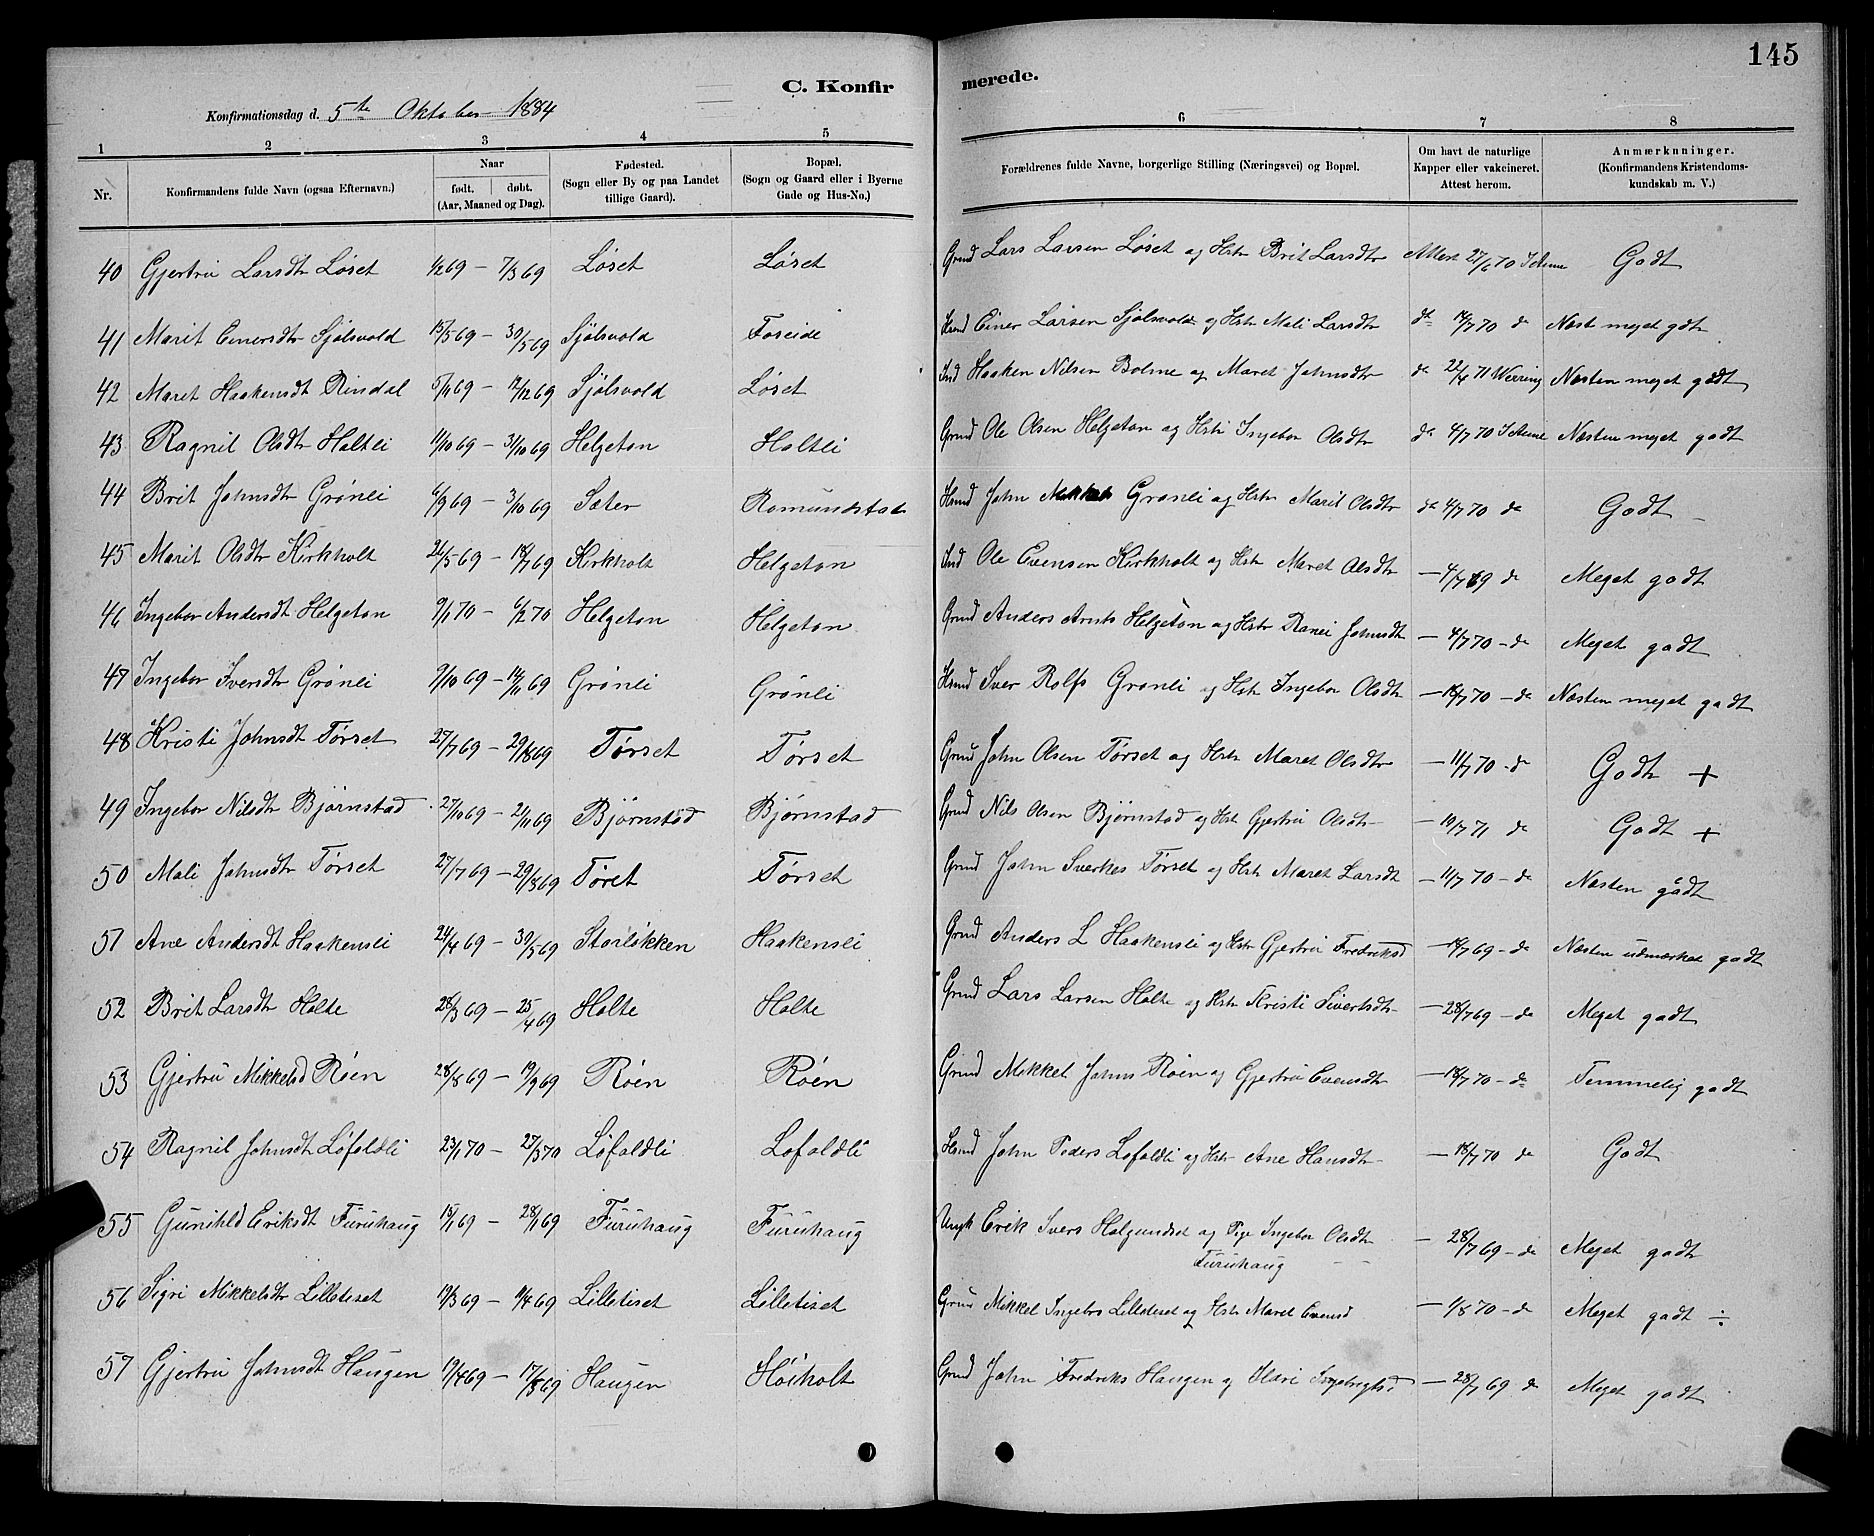 145
C. Konfirmerede.
Konfirmationsdag d. 5te Oktober 1884
1 2 3 4 5 6 7 8
Nr. Konfirmandens fulde Navn (ogsaa Efternavn.) Naar født. døbt. (Aar, Maaned og Dag). Fødested. (Sogn eller By og paa Landet tillige Gaard). Bopæl. (Sogn og Gaard eller i Byerne Gade og Hus-No.) Forældrenes fulde Navne, borgerlige Stilling (Næringsvei) og Bopæl. Om havt de naturlige Kapper eller vakcineret. Attest herom. Anmærkninger. (Konfirmandens Kristendomskundskab m. V.)
40 Gjertru Larsdtr Løset 1/2 69 – 7/3 69 Løset Løset Grmd Lars Larsen Løset og Hstr Brit Larsdtr Attest 27/6 70 Godt
41 Marit Einersdtr Sjølsvold 15/5 69 – 30/5 69 Sjølsvold Foseide Hsmd Einer Larsen Sjølsvold og Hstr Mali Larsdtr do 14/7 70 do Næst meget gdt
42 Maret Haakensdt Rindal 5/11 69 – 12/12 69 Sjølsvold Løset Ind Haaken Nilsen Bolme og Maret Johnsdtr do 22/4 71 Werring Næsten meget godt
43 Ragnil Olsdtr Holtli 11/10 69 – 31/10 69 Helgeton Holtli Grmd Ole Olsen Helgeton og Hstr Ingebor Olsdtr do 4/7 70 Næsten meget godt
44 Brit Johnsdtr Grønli 6/9 69 – 3/10 69 Sæter Romundstad Hsmd John Mikkels Grønli og Hstr Marit Olsdtr do 4/7 70 do Godt
45 Marit Olsdtr Kirkholt 24/5 69 – 18/7 69 Kirkholt Helgeton Ind Ole Evensen Kirkholt og Hstr Maret Olsdtr – 4/7 69 do Meget godt
46 Ingebor Andersdt Helgeton 9/1 70 – 6/2 70 Helgeton Helgeton Grmd Anders Arnts Helgeton og Hstr Ranei Johnsdtr – 4/7 70 – do Meget godt
47 Ingebor Iversdtr Grønli 9/10 69 – 14/11 69 Grønli Grønli Hsmd Iver Rolfs Grønli og Hstr Ingebor Olsdtr – 18/7 70 – do Næsten meget godt
48 Kristi Johnsdt Tørset 27/7 69 – 29/8 69 Tørset Tørset Grmd John Olsen Tørset og Hstr Maret Olsdtr – 11/7 70 – do Godt +
49 Ingebor Nilsdt Bjørnstad 27/10 69 – 21/11 69 Bjørnstad Bjørnstad Grmd Nils Olsen Bjørnstad og Hst Gjertru Olsdt – 10/7 71 do Godt +
50 Mali Johnsdtr Tørset 27/7 69 – 29/8 69 Tøret Tørset Grmd John Sverkes Tørset og Hstr Maret Larsdt – 11/7 70 – do Næsten godt
51 Ane Andersdt Haakensli 24/4 69 – 30/5 69 Storløkken Haakensli Grmd Anders L Haakensli og Hstr Gjertru Fredriksd – 18/7 69 – do Næsten udmærket godt
52 Brit Larsdtr Holte 28/3 69 – 25/4 69 Holte Holte Grmd Lars Larsen Holte og Hstr Kristi Sivertsdtr – 28/7 69 – do Meget godt
53 Gjertru Mikkelsd Røen 28/8 69 – 19/9 69 Røen Røen Grmd Mikkel Johns Røen og Gjertru Evensdtr – 18/7 70 – do Temmelig godt
54 Ragnil Johnsdt Løfaldli 23/1 70 – 27/3 70 Løfaldli Lofaldli Hsmd John Peders Lofaldli og Hstr Ane Hansdtr – 18/7 70 do Godt
55 Gunihld Eriksdt Furuhaug 15/1 69 – 28/1 69 Furuhaug Furuhaug Ungk Erik Ivers Halgundset og Pige Ingebor Olsdtr Furuhaug – 28/7 69 – do Meget godt
56 Sigri Mikkelsdtr Lilletiset 19/3 69 – 11/4 69 Lilletiset Lilletiset Grmd Mikkel Ingebrs Lilletiset og Hstr Maret Evensd – 1/8 70 – do Meget godt ÷
57 Gjertru Johnsdt Haugen 19/4 69 – 17/5 69 Haugen Høiholt Grmd John Fredriks Haugen og Kari Ingebrigtsd – 28/7 69 do Meget godt